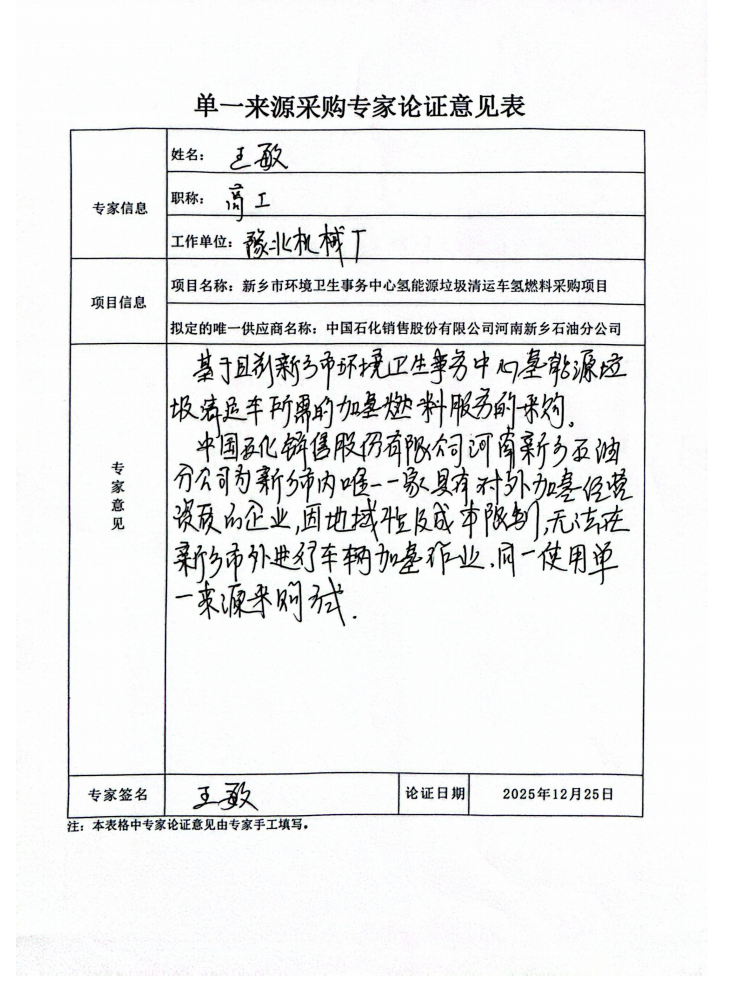 单一来源采购专家论证意见表
专家信息
姓名：王敏
职称：高工
工作单位：豫北机械厂
项目信息
项目名称：新乡市环境卫生事务中心氢能源垃圾清运车氢燃料采购项目
拟定的唯一供应商名称：中国石化销售股份有限公司河南新乡石油分公司
专家意见
基于目前新乡市环境卫生事务中心氢能源垃
圾清运车所需的加氢燃料服务的采购。
中国石化销售股份有限公司河南新乡石油
分公司为新乡市内唯一一家具有对外加氢经营
资质的企业，因地域性及成本限制，无法在
新乡市外进行车辆加氢作业，同一使用单
一来源采购方式．
专家签名
王敏
论证日期
2025年12月25日
注：本表格中专家论证意见由专家手工填写。